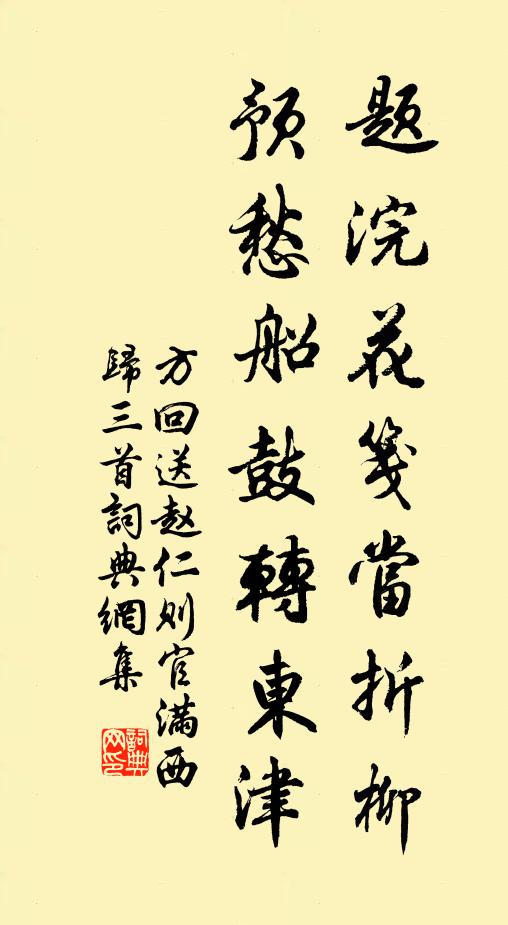 題浣花箋當折柳
預愁船鼓轉東津
方回送赵仁则官滿西
歸三首詞典網集
詞典
网印